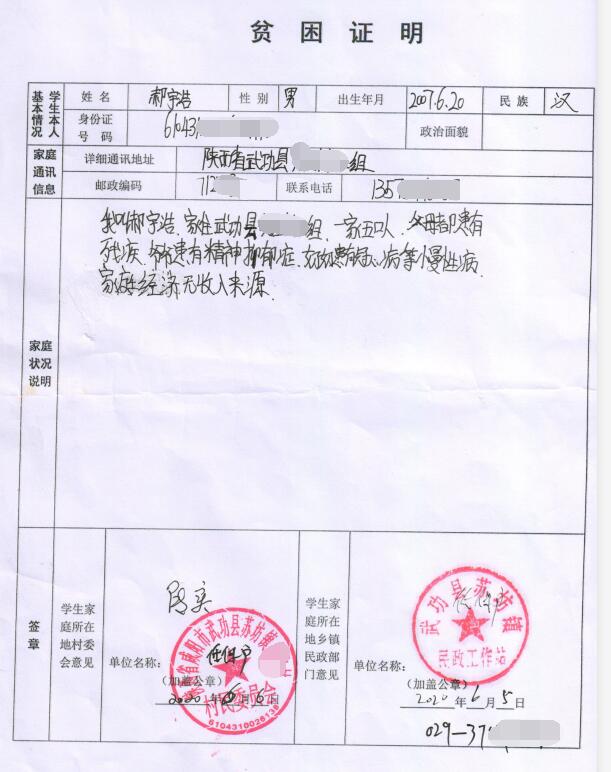 贫困证明
学生本人基本情况
姓名 郝宇浩 性别 男 出生年月 2007.6.20 民族 汉
身份证号码 61043 政治面貌
家庭通讯信息
详细通讯地址 陕西省武功县 组
邮政编码 712 联系电话 135
家庭状况说明
我叫郝宇浩,家住武功县 组,一家五口人,父母都患有
残疾, 患有精神抑郁症, 患有 心病等慢性病
家庭经济无收入来源.
签章
学生家庭所在地村委会意见
属实
省咸阳市武功县苏坊镇
村民委员会
6104310026138
单位名称:
(加盖公章)
2020年6月5日
学生家庭所在地乡镇民政部门意见
武功县苏坊镇
民政工作站
单位名称:
(加盖公章)
2020年6月5日
029-37